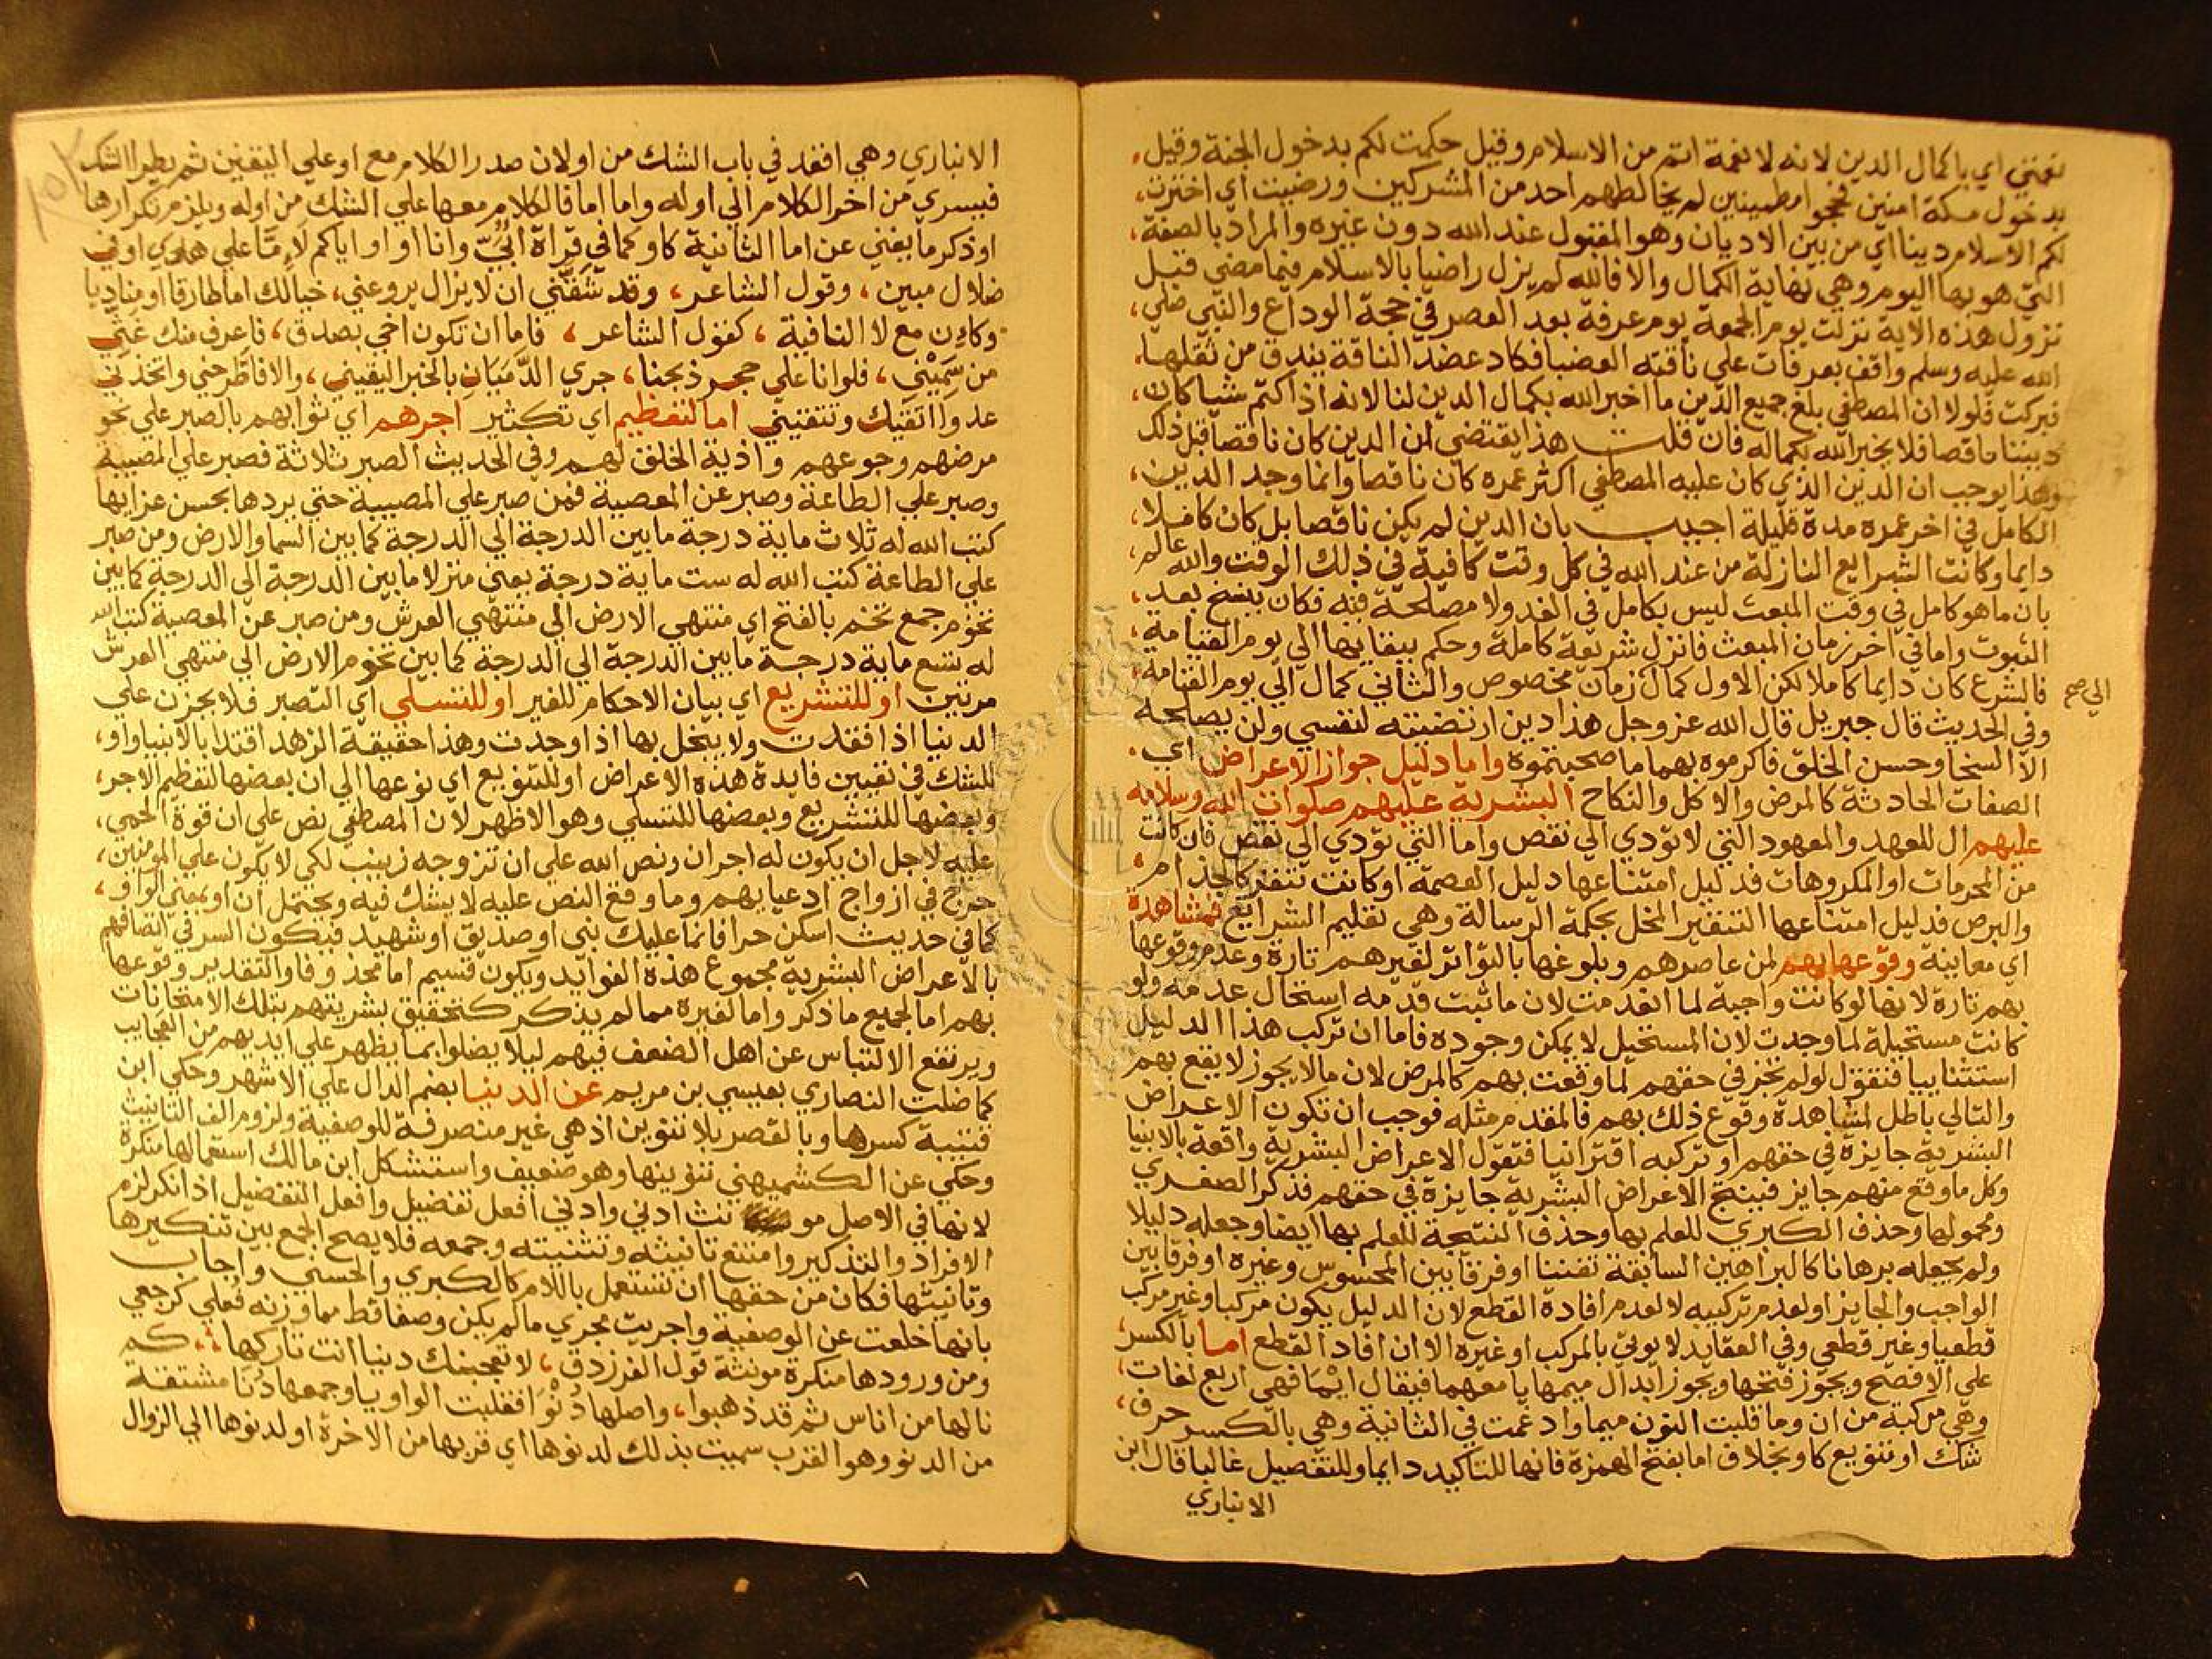 نعمتي اي باكمال الدين لانه لا نعمة اتم من الاسلام وقيل حكمت لكم بدخول الجنة وقيل
بدخول مكة امنين فحجوا مطمينين لم يخالطهم احد من المشركين ورضيت اي اخترت
لكم الاسلام دينا اي من بين الاديان وهو المقبول عند الله دون غيره والمراد بالصفة
التي هو بها اليوم وهي نهاية الكمال والا فالله لم يزل راضيا بالاسلام فيما مضي قبل
نزول هذه الاية نزلت يوم الجمعة يوم عرفة بعد العصر في حجة الوداع والنبي صلي
الله عليه وسلم واقف بعرفات علي ناقته العضبا فكاد عضد الناقة يندق من ثقلها
فبركت فلولا ان المصطفي بلغ جميع الدين ما اخبر الله بكمال الدين لنا لانه اذا كتم شيا كان
ديننا ناقصا فلا يخبر الله بكماله فان قلت هذا يقتضي ان الدين كان ناقصا قبل ذلك
وهذا يوجب ان الدين الذي كان عليه المصطفي اكثر عمره كان ناقصا وانما وجد الدين
الكامل في اخر عمره مدة قليلة اجيب بان الدين لم يكن ناقصا بل كان كاملا
دايما وكانت الشرايع النازلة من عند الله في كل وقت كافية في ذلك الوقت والله عالم
بان ما هو كامل في وقت المبعث ليس بكامل في الغد ولا مصلحة فيه فكان ينسخ بعد
الثبوت واما في اخر زمان المبعث فانزل شريعة كاملة وحكم ببقايها الي يوم القيامة
فالشرع كان دايما كاملا لكن الاول كمال زمان مخصوص والثاني كمال الي يوم القيامة
الي صح
وفي الحديث قال جبريل قال الله عز وجل هذا دين ارتضيته لنفسي ولن يصلحه
الا السخا وحسن الخلق فاكرموه بهما ما صحبتموه واما دليل جواز الاعراض اي
الصفات الحادثة كالمرض والاكل والنكاح البشرية عليهم صلوات الله وسلامه
عليهم ال للعهد والمعهود التي لا تؤدي الي نقص واما التي تؤدي الي نقص فان كانت
من المحرمات او المكروهات فدليل امتناعها دليل العصمة او كانت تنفر كالجذام
والبرص فدليل امتناعها التنفير المخل بحكمة الرسالة وهي تعليم الشرايع فمشاهدة
اي معاينة وقوعها بهم لمن عاصرهم وبلوغها بالتواتر لغيرهم تارة وعدم وقوعها
بهم تارة لانها لو كانت واجبة لما انعدمت لان ما ثبت قدمه استحال عدمه ولو
كانت مستحيلة لما وجدت لان المستحيل لا يمكن وجوده فاما ان تركب هذا الدليل
استثنايبا فتقول لو لم تجز في حقهم لما وقعت بهم كالمرض لان ما لا يجوز لا يقع بهم
والتالي باطل لمشاهدة وقوع ذلك بهم فالمقدم مثله فوجب ان تكون الاعراض
البشرية جايزة في حقهم او تركبه اقترانيا فتقول الاعراض البشرية واقعة بالانبيا
وكل ما وقع منهم جايز فينتج الاعراض البشرية جايزة في حقهم فذكر الصغري
ومحمولها وحذف الكبري للعلم بها وحذف النتيجة للعلم بها ايضا وجعله دليلا
ولم يجعله برهانا كالبراهين السابقة تفننا او فرقا بين المحسوس وغيره او فرقا بين
الواجب والجايز او لعدم تركيبه لا لعدم افادة القطع لان الدليل يكون مركبا وغير مركب
قطعيا وغير قطعي وفي العقايد لا يوتي بالمركب او غيره الا ان افاد القطع اما بالكسر
علي الافصح ويجوز فتحها ويجوز ابدال ميمها يا معهما فيقال ايما فهي اربع لغات
وهي مركبة من ان وما قلبت النون ميما وادغمت في الثانية وهي بالكسر حرف
شك او تنويع كاو بخلاف اما بفتح الهمزة فانها للتاكيد دايما وللتفصيل غالبا قال ابن
الانباري
الانباري وهي اقعد في باب الشك من او لان صدر الكلام مع او علي اليقين ثم يطرا الشك
فيسري من اخر الكلام الي اوله واما اما فالكلام معها علي الشك من اوله ويلزم تكرارها
او ذكر ما يغني عن اما الثانية كاو كما في قراة ابي وانا او اياكم لاما علي هدي او في
ضلال مبين، وقول الشاعر، وقد شفني ان لا يزال يروعني، خيالك اما طارقا او مناديا
وكان مع لا النافية، كقول الشاعر، فاما ان تكون اخي بصدق، فاعرف منك غثي
من سميني، فلو انا علي حجر ذبحنا، جري الدميان بالخبر اليقيني، والا فاطرحني واتخذني
عدوا اتقيك وتتقيني اما لتعظيم اي تكثير اجرهم اي ثوابهم بالصبر علي نحو
مرضهم وجوعهم واذية الخلق لهم وفي الحديث الصبر ثلاثة فصبر علي المصيبة
وصبر علي الطاعة وصبر عن المعصية فمن صبر علي المصيبة حتي يردها بحسن عزايها
كتب الله له ثلاث ماية درجة ما بين الدرجة الي الدرجة كما بين السما والارض ومن صبر
علي الطاعة كتب الله له ست ماية درجة يعني منزلا ما بين الدرجة الي الدرجة كما بين
تخوم جمع تخم بالفتح اي منتهي الارض الي منتهي العرش ومن صبر عن المعصية كتب الله
له تسع ماية درجة ما بين الدرجة الي الدرجة كما بين تخوم الارض الي منتهي العرش
مرتين او للتشريع اي بيان الاحكام للغير او للتسلي اي التصبر فلا يحزن علي
الدنيا اذا فقدت ولا يبخل بها اذا وجدت وهذا حقيقة الزهد اقتدا بالانبيا واو
للشك في تعيين فايدة هذه الاعراض او للتنويع اي نوعها الي ان بعضها لتعظيم الاجر
وبعضها للتشريع وبعضها للتسلي وهو الاظهر لان المصطفي نص علي ان قوة الحمي
عليه لاجل ان يكون له اجران ونص الله علي ان تزوجه زينب لكي لا يكون علي المومنين
حرج في ازواج ادعيايهم وما وقع النص عليه لا يشك فيه ويحتمل ان او بمعني الواو
كما في حديث اسكن حرا فانما عليك نبي او صديق او شهيد فيكون السر في اتصافهم
بالاعراض البشرية مجموع هذه الفوايد ويكون قسيم اما محذوفا والتقدير وقوعها
بهم اما لجميع ما ذكر واما لغيره مما لم يذكر كتحقيق بشريتهم بتلك الامتحانات
ويرتفع الالتباس عن اهل الضعف فيهم ليلا يضلوا بما يظهر علي ايديهم من العجايب
كما ضلت النصاري بعيسي بن مريم عن الدنيا بضم الدال علي الاشهر وحكي ابن
قتيبة كسرها وبالقصر بلا تنوين اذ هي غير منصرفة للوصفية ولزوم الف التانيث
وحكي عن الكشميهني تنوينها وهو ضعيف واستشكل ابن مالك استعمالها منكرة
لانها في الاصل مو نث ادني وادني افعل تفضيل وافعل التفضيل اذا نكر لزم
الافراد والتذكير وامتنع تانيثه وتثنيته وجمعه فلا يصح الجمع بين تنكيرها
وتانيثها فكان من حقها ان تستعمل باللام كالكبري والحسني واجاب
بانها خلعت عن الوصفية واجريت مجري ما لم يكن وصفا قط مما وزنه فعلي كرجعي
ومن ورودها منكرة مونثة قول الفرزدق، لا تعجبنك دنيا انت تاركها، كم
نالها من اناس ثم قد ذهبوا، واصلها دنوا فقلبت الواو يا وجمعها دنا مشتقة
من الدنو وهو القرب سميت بذلك لدنوها اي قربها من الاخرة او لدنوها الي الزوال